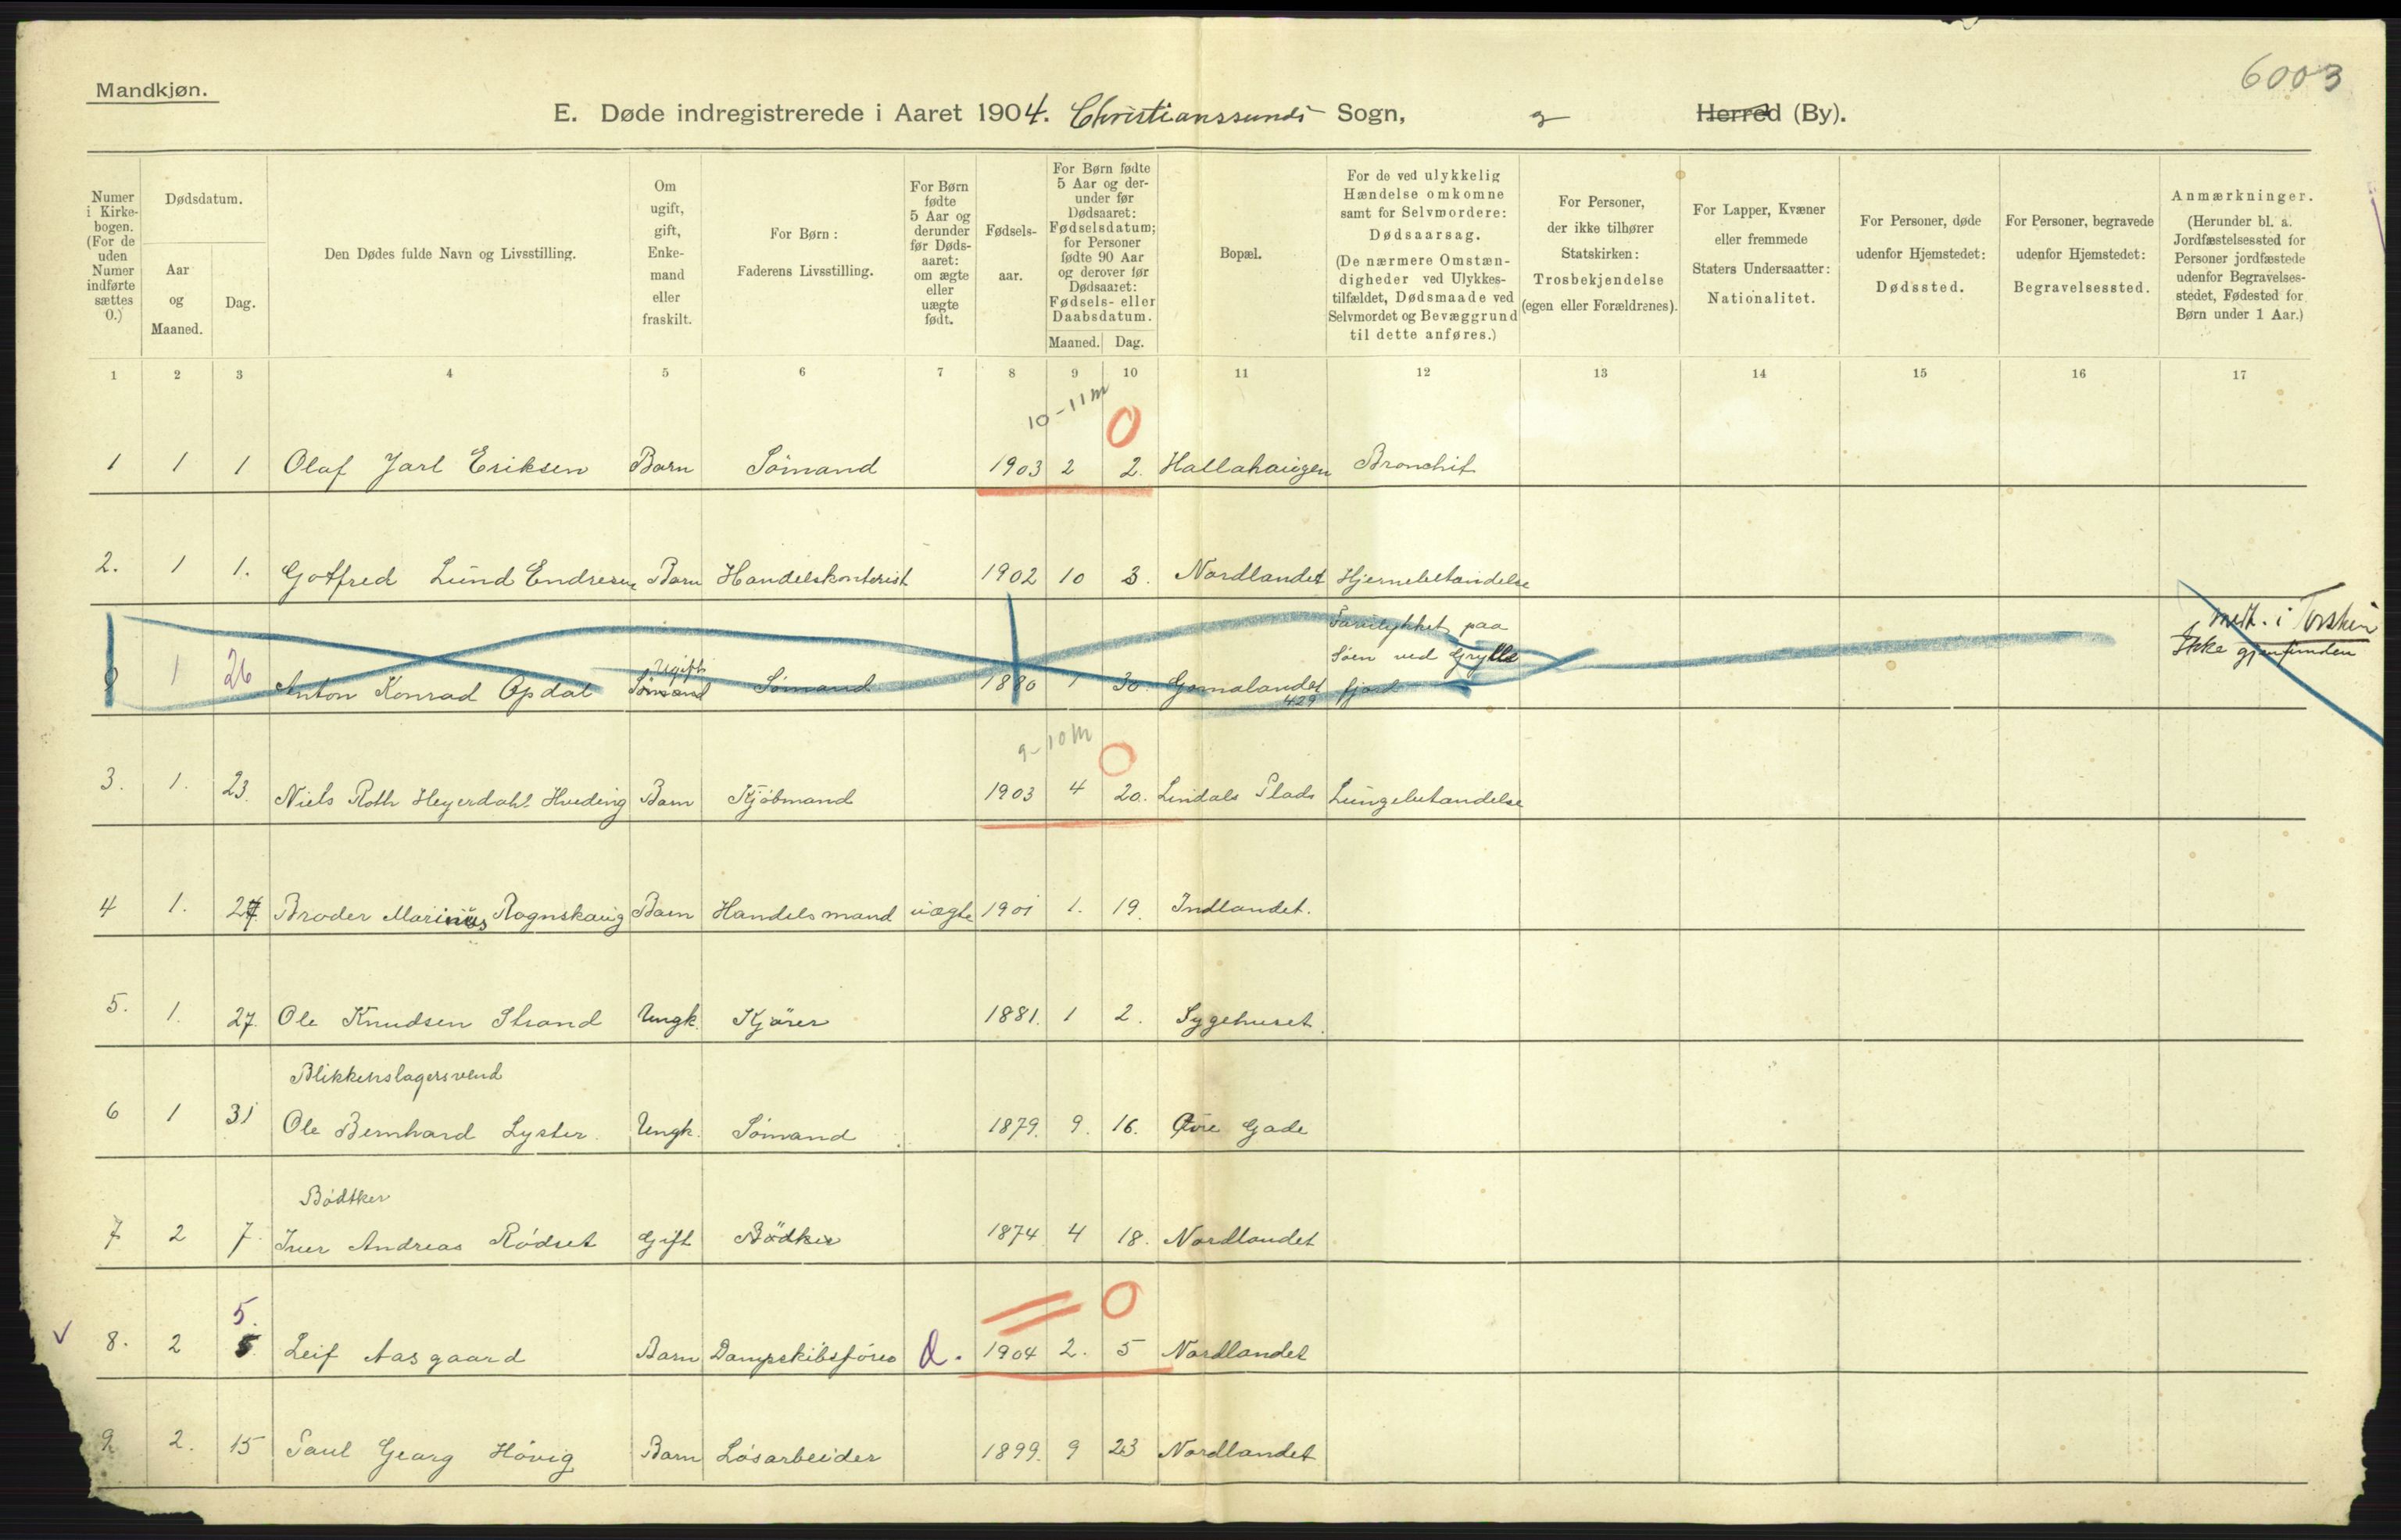 6003
Mandkjøn.
E. Døde indregistrerede i Aaret 1904. Christianssunds Sogn, Herred (By).
Numer i Kirkebogen. (For de uden Numer indførte sættes 0.)
Dødsdatum.
Aar og Maaned.
Dag.
Den Dødes fulde Navn og Livsstilling.
Om ugift, gift, Enkemand eller fraskilt.
For Børn: Faderens Livsstilling.
For Børn fødte 5 Aar og derunder før Dødsaaret: om ægte eller uægte født.
Fødselsaar.
For Børn fødte 5 Aar og derunder før Dødsaaret: Fødselsdatum; for Personer fødte 90 Aar og derover før Dødsaaret: Fødsels- eller Daabsdatum.
Maaned. Dag.
Bopæl.
For de ved ulykkelig Hændelse omkomne samt for Selvmordere: Dødsaarsag. (De nærmere Omstændigheder ved Ulykkestilfældet, Dødsmaade ved Selvmordet og Bevæggrund til dette anføres.)
For Personer, der ikke tilhører Statskirken: Trosbekjendelse (egen eller Forældrenes).
For Lapper, Kvæner eller fremmede Staters Undersaatter: Nationalitet.
For Personer, døde udenfor Hjemstedet: Dødssted.
For Personer, begravede udenfor Hjemstedet: Begravelsessted.
Anmærkninger. (Herunder bl. a. Jordfæstelsessted for Personer jordfæstede udenfor Begravelsesstedet, Fødested for Børn under 1 Aar.)
1 2 3 4 5 6 7 8 9 10 11 12 13 14 15 16 17
10-11 m
0
1 1 1 Olaf Jarl Eriksen Barn Sømand 1903 2 2. Hallahaugen Bronchit
2. 1 1. Gotfred Lund Endresen Barn Handelskontorist 1902 10 3. Nordlandet Hjernebetændelse
Forulykket paa Søen ved Grylle fjord
medt. i Torsken
Ikke gjenfunden
0 1 26 Anton Konrad Opdal Ugift Sømand Sømand 1880 1 30. Gomalandet 429
9-10 m
0
3. 1. 23. Niels Roth Heyerdahl Hveding Barn Kjøbmand 1903 4 20. Lindals Plads Lungebetændelse
4 1. 27 Broder Marinius Rognskaug Barn Handelsmand uægte 1901 1. 19. Indlandet.
5. 1. 27. Ole Knudsen Strand Ungk. Kjører 1881. 1 2. Sygehuset.
Blikkenslagersvend
6 1 31 Ole Bernhard Lyster. Ungk. Sømand 1879. 9. 16. Øvre Gade
Bødtker
7 2 7. Iver Andreas Rødset Gift Bødker 1874 4 18. Nordlandet
5.
0
8. 2 5. Leif Aasgaard Barn Dampskibsfører 1904 2. 5 Nordlandet
9. 2. 15 Paul Georg Høvig Barn Løsarbeider 1899. 9 23 Nordlandet